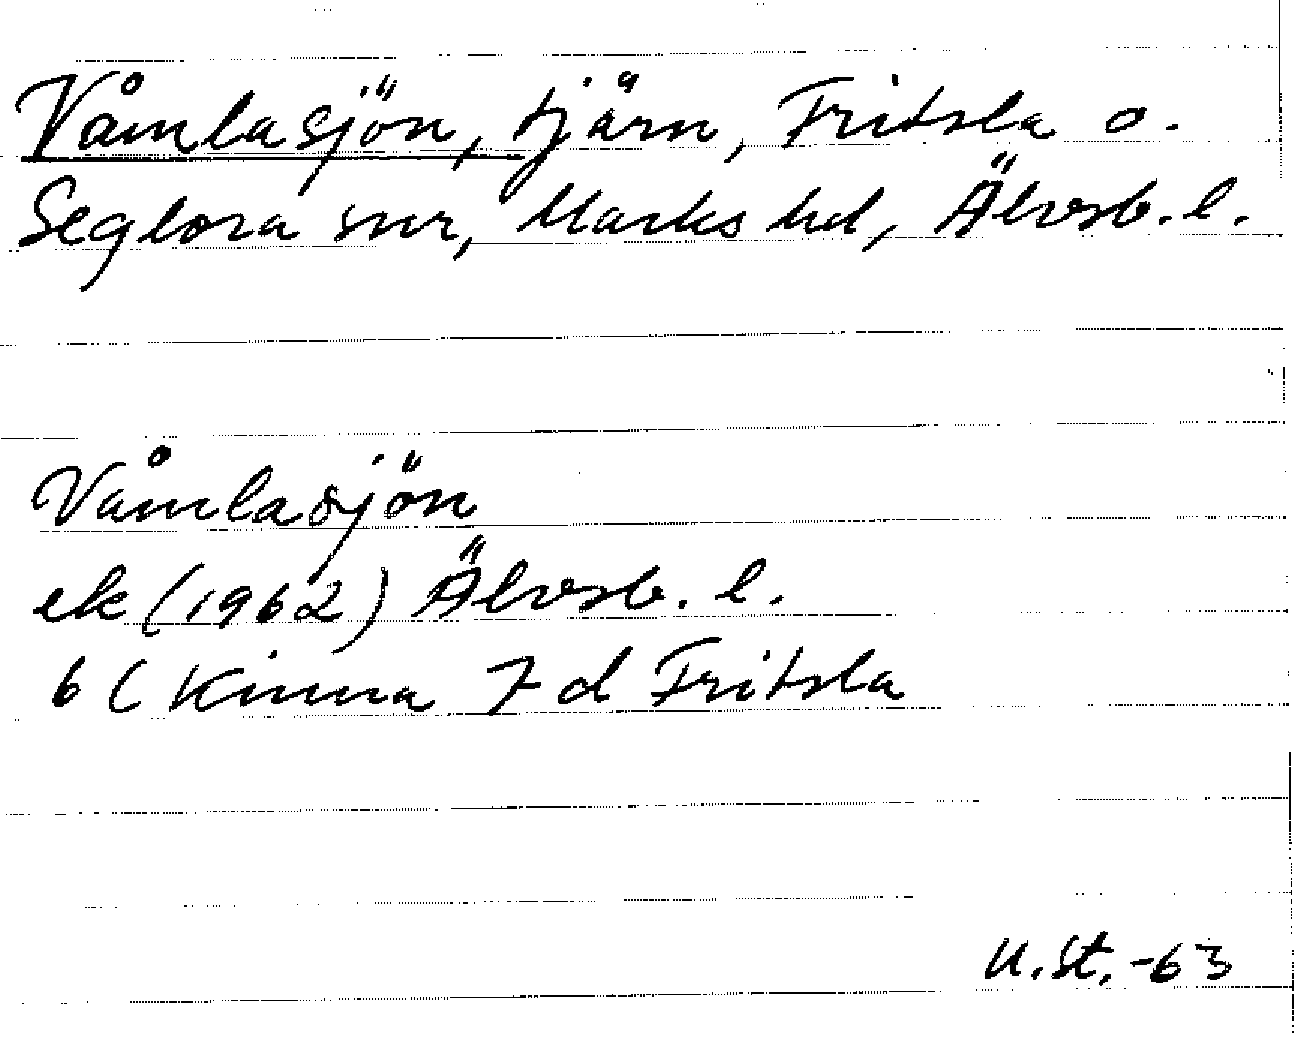 Våmlasjön, tjärn, Fritsla o.
Seglora snr, Marks hd, Älvsb. l.
Våmlasjön
ek (1962) Älvsb. l.
6 C Kinna 7 d Fritsla
U. St. -63